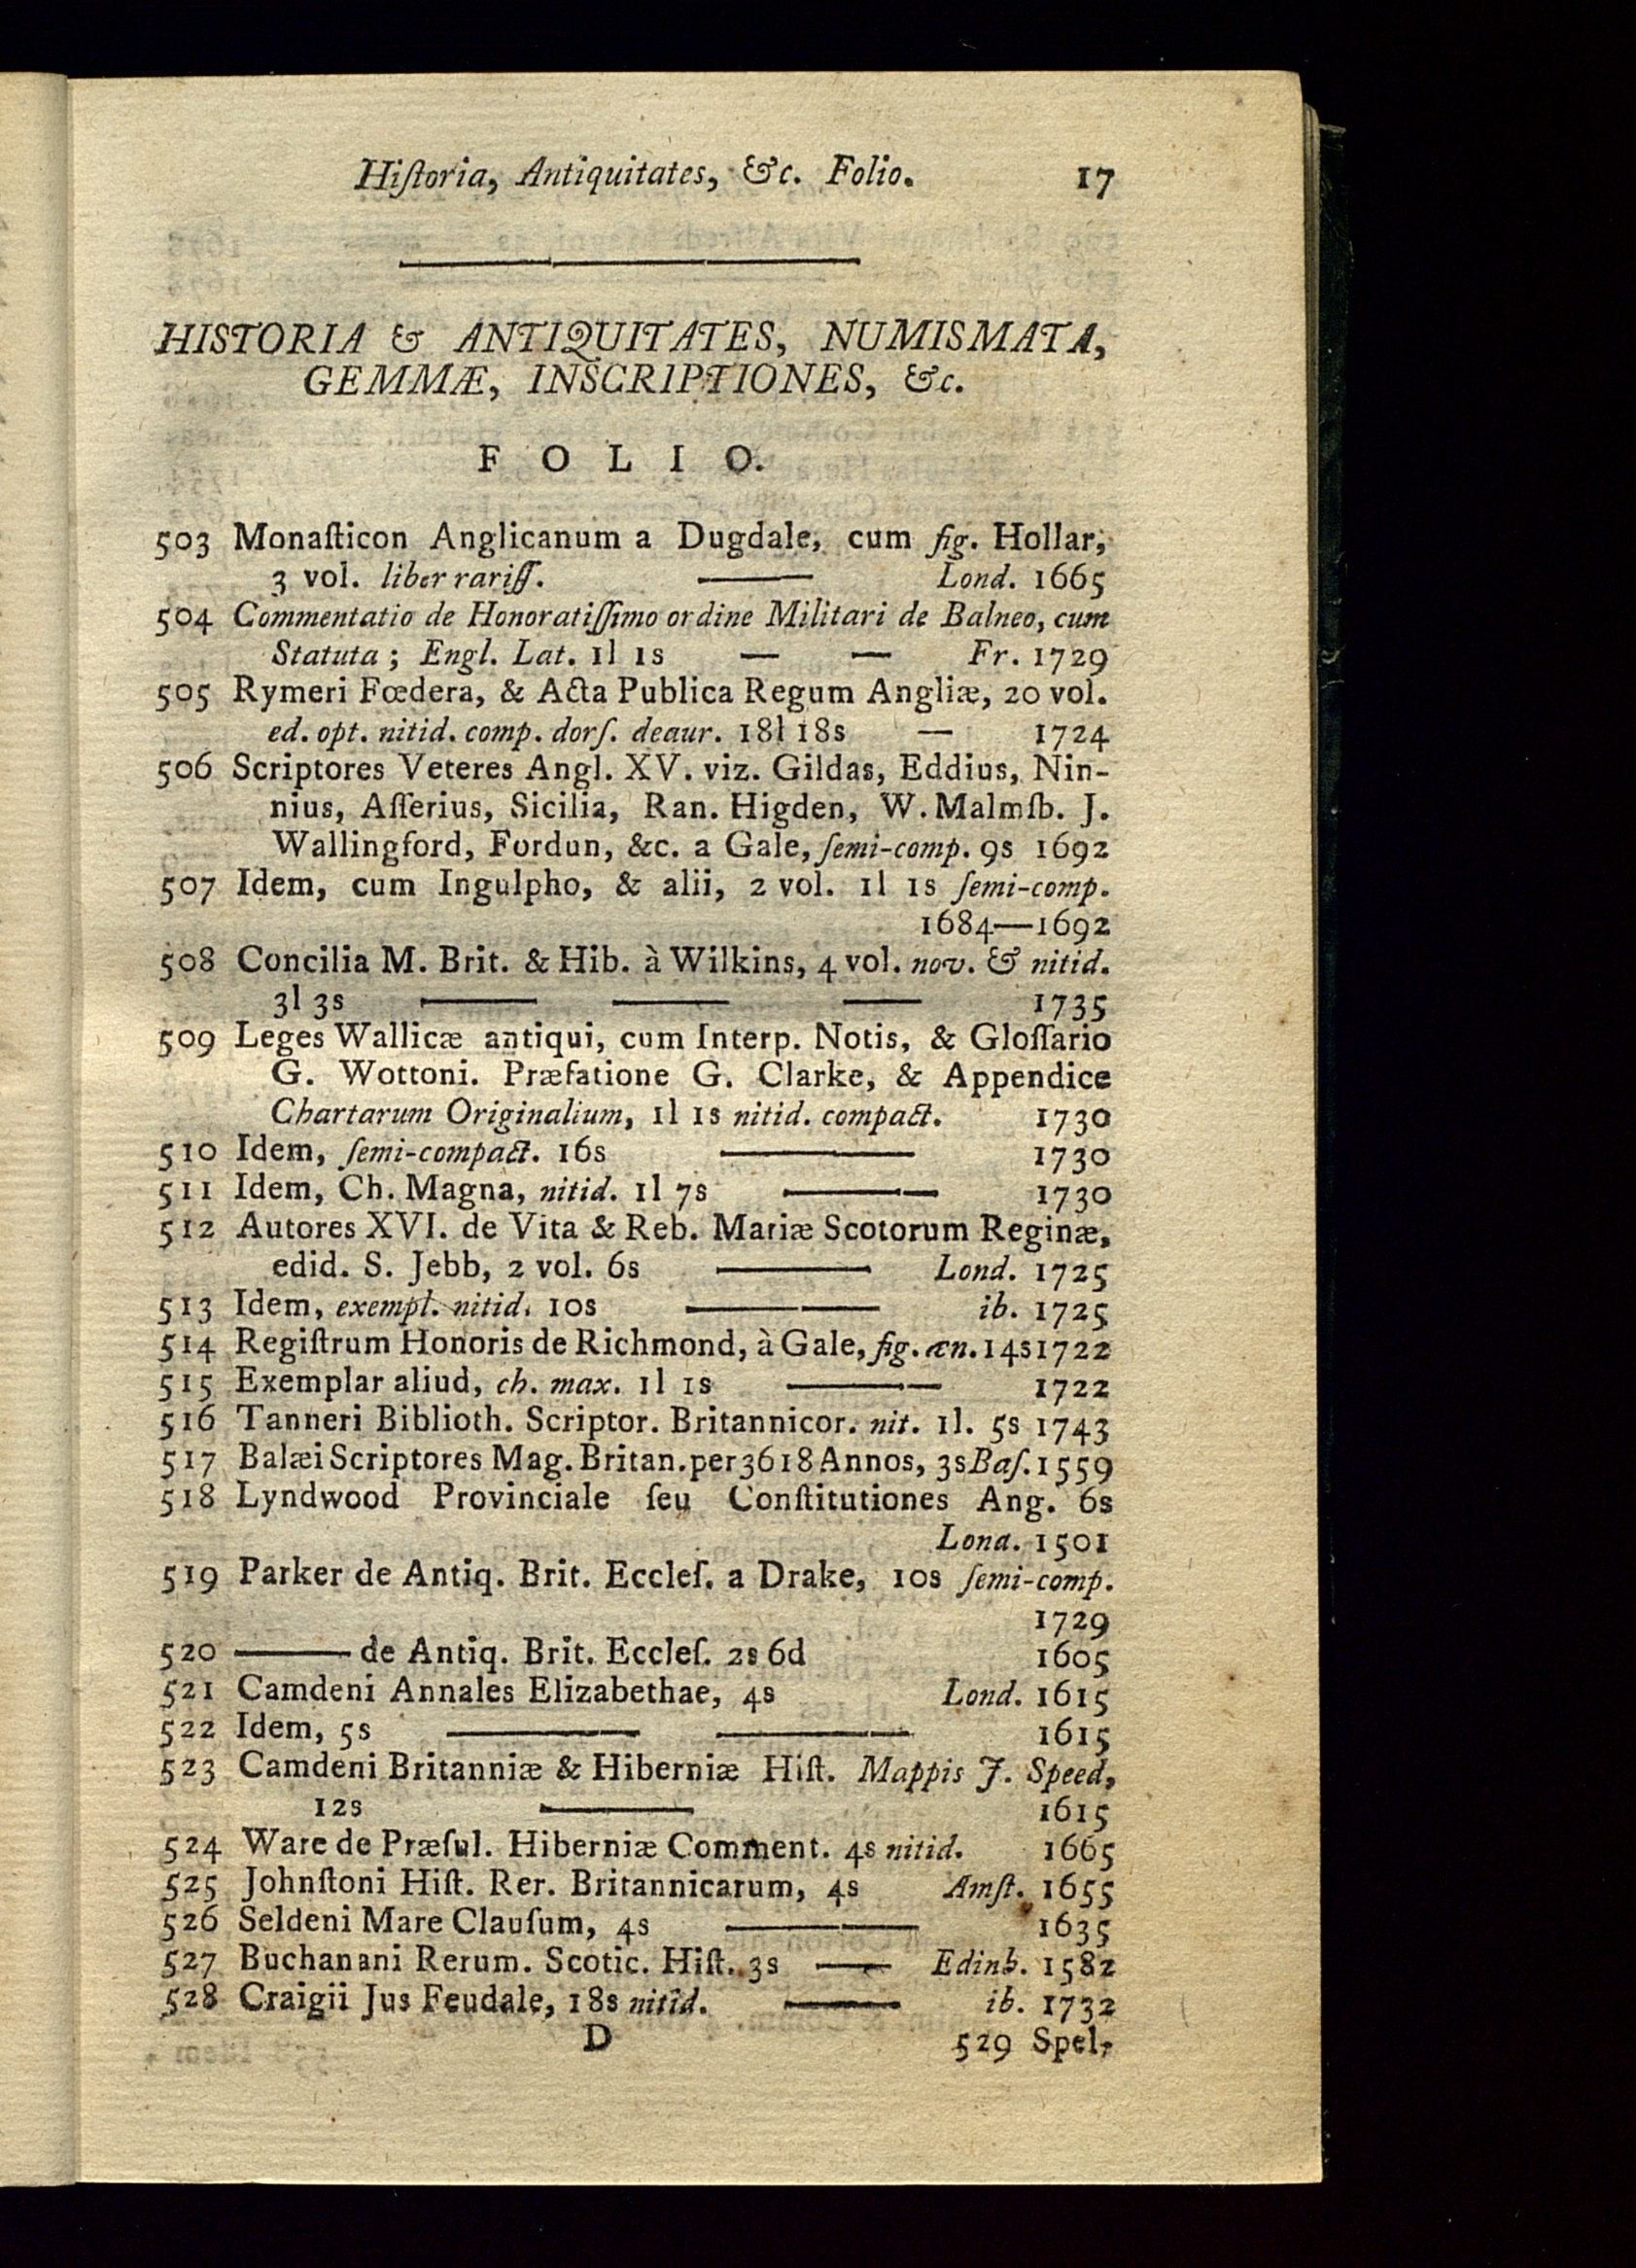 Hiſtoria, Antiquitates, &c. Folio. 17
HISTORIA & ANTIQUITATES, NUMISMATA,
GEMMÆ, INSCRIPTIONES, &c.
F O L I O.
503 Monaſticon Anglicanum a Dugdale, cum fig. Hollar,
3 vol. liber rariſſ. —— Lond. 1665
504 Commentatio de Honoratiſſimo ordine Militari de Balneo, cum
Statuta; Engl. Lat. 1l 1s — — Fr. 1729
505 Rymeri Fœdera, & Acta Publica Regum Angliæ, 20 vol.
ed. opt. nitid. comp. dorſ. deaur. 18l 18s — 1724
506 Scriptores Veteres Angl. XV. viz. Gildas, Eddius, Nin-
nius, Aſſerius, Sicilia, Ran. Higden, W. Malmſb. J.
Wallingford, Fordun, &c. a Gale, ſemi-comp. 9s 1692
507 Idem, cum Ingulpho, & alii, 2 vol. 1l 1s ſemi-comp.
1684—1692
508 Concilia M. Brit. & Hib. à Wilkins, 4 vol. nov. & nitid.
3l 3s —— —— —— 1735
509 Leges Wallicæ antiqui, cum Interp. Notis, & Gloſſario
G. Wottoni. Præfatione G. Clarke, & Appendice
Chartarum Originalium, 1l 1s nitid. compact. 1730
510 Idem, ſemi-compact. 16s —— 1730
511 Idem, Ch. Magna, nitid. 1l 7s —— 1730
512 Autores XVI. de Vita & Reb. Mariæ Scotorum Reginæ,
edid. S. Jebb, 2 vol. 6s —— Lond. 1725
513 Idem, exempl. nitid. 10s —— ib. 1725
514 Regiſtrum Honoris de Richmond, à Gale, fig. æn. 14s 1722
515 Exemplar aliud, ch. max. 1l 1s —— 1722
516 Tanneri Biblioth. Scriptor. Britannicor. nit. 1l. 5s 1743
517 Balæi Scriptores Mag. Britan. per 3618 Annos, 3s Baſ. 1559
518 Lyndwood Provinciale ſeu Conſtitutiones Ang. 6s
Lond. 1501
519 Parker de Antiq. Brit. Eccleſ. a Drake, 10s ſemi-comp.
1729
520 —— de Antiq. Brit. Eccleſ. 2s 6d 1605
521 Camdeni Annales Elizabethae, 4s Lond. 1615
522 Idem, 5s —— —— 1615
523 Camdeni Britanniæ & Hiberniæ Hiſt. Mappis J. Speed,
12s —— 1615
524 Ware de Præſul. Hiberniæ Comment. 4s nitid. 1665
525 Johnſtoni Hiſt. Rer. Britannicarum, 4s Amſt. 1655
526 Seldeni Mare Clauſum, 4s —— 1635
527 Buchanani Rerum. Scotic. Hiſt. 3s —— Edinb. 1582
528 Craigii Jus Feudale, 18s nitid. —— ib. 1732
D 529 Spel-